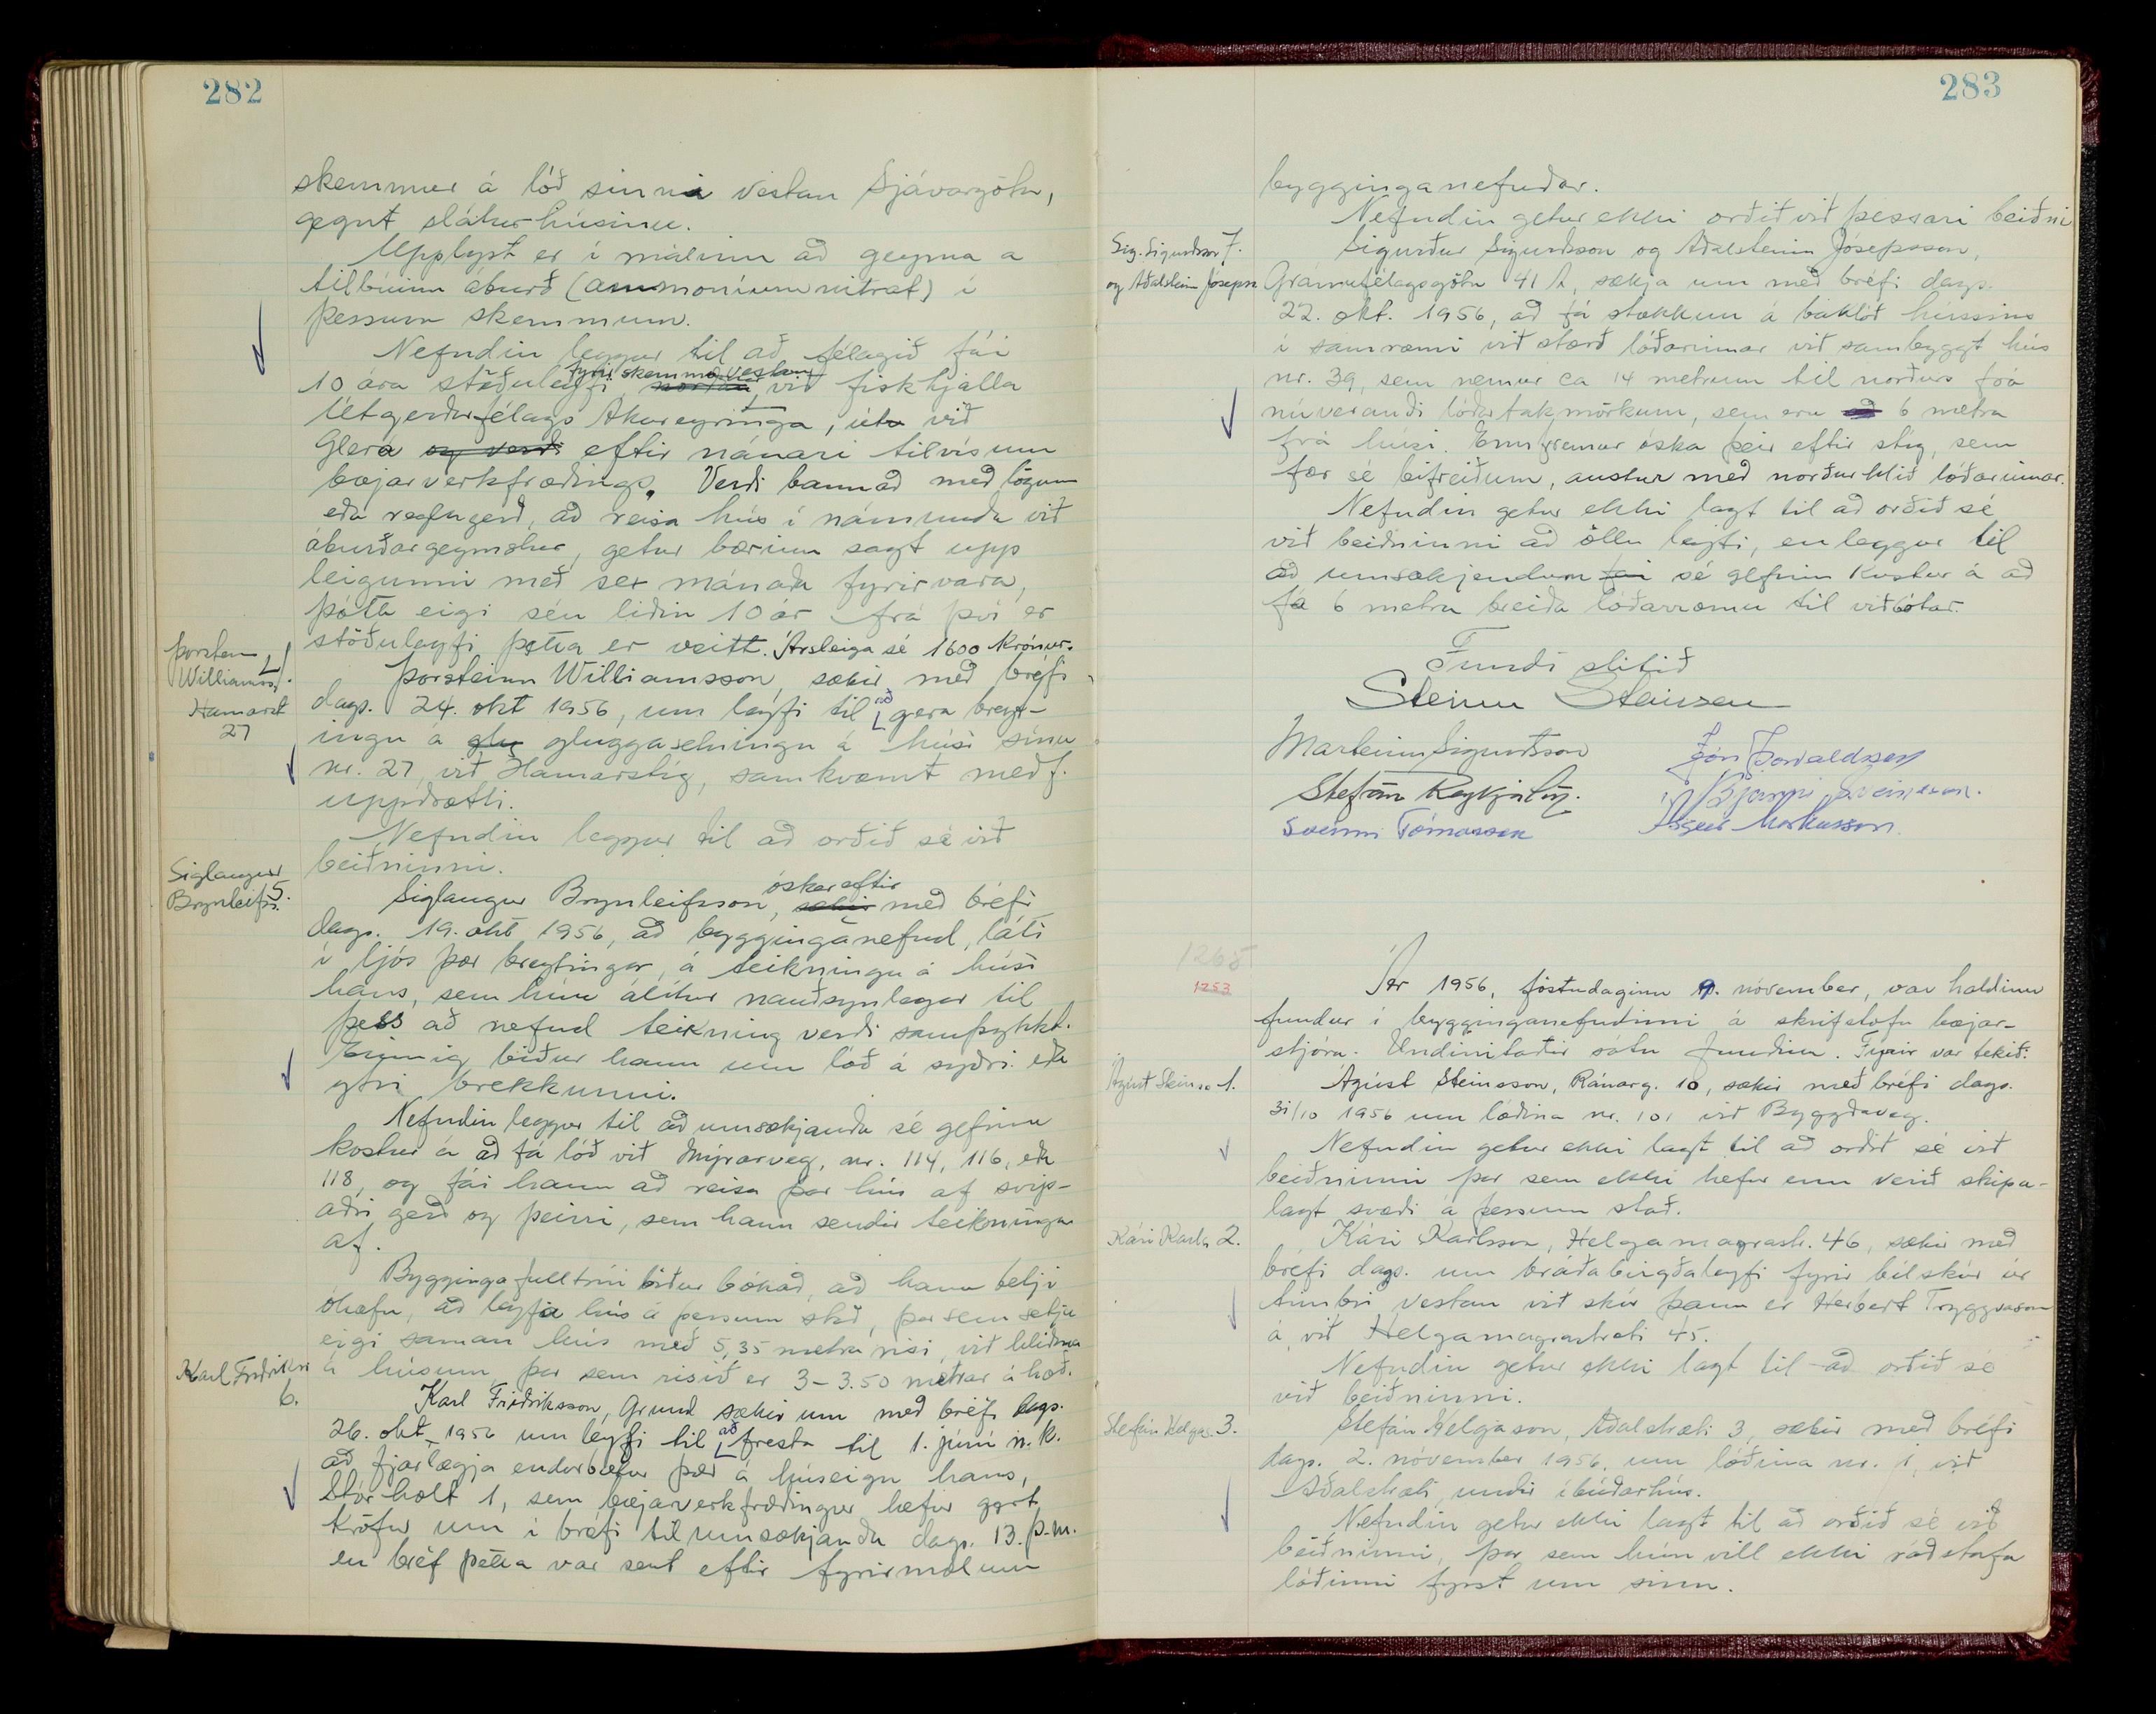 282
skemmur á lóð sinni vestan Sjávargötu,
gegnt sláturhúsinu.
Upplyst er í málinu að geyma a
tilbúinn áburð (ammoníumnitrat) í
þessum skemmum.
Nefndin leggur til að félagið fái
fyrir skemmu vestan
10 ára stöðuleyfi norðan við fiskhjalla
Útgerðarfélags Akureyringa, úta við
Glerá og verði eftir nánari tilvísun
bæjarverkfræðings. Verði bannað með lögum
eða reglugerð, að reisa hús í námunda við
áburðargeymslur, getur bærinn sagt upp
leigunni með sex mánaða fyrirvara,
þótt eigi séu liðin 10 ár frá því er
stöðuleyfi þetta er veitt. Ársleiga sé 1600 krónur.
Þorsteinn
Williamss.
Hamarst
27
4.
Þorsteinn Williamsson, sækir með bréfi
dags. 24. okt 1956, um leyfi til að gera breyt-
ingu á glu gluggasetningu á húsi sínu
nr. 27, við Hamarstíg, samkvæmt meðf.
uppdrætti.
Nefndin leggur til að orðið sé við
beiðninni.
Siglaugur
Brynleifs.
5.
óskar eftir
Siglaugur Brynleifsson, sækir með bréfi
dags. 19. okt 1956, að bygginganefnd, láti
í ljós þær breytingar, á teikningu á húsi
hans, sem hún álítur nauðsynlegar til
þess að nefnd teikning verði samþykkt.
Einnig biður hann um lóð á syðri eða
ytri brekkunni.
Nefndin leggur til að umsækjanda sé gefinn
kostur á að fá lóð við Mýrarveg, nr. 114, 116, eða
118, og fái hann að reisa þar hús af svip-
aðri gerð og þeirri, sem hann sendir teikningu
af.
Byggingafulltrúi biður bókað, að hann telji
óhæfu, að leyfa hús á þessum stað, þar sem setja
eigi saman hús með 5,35 metra risi, við hliðina
á húsum, þar sem risið er 3-3.50 metrar á hæð.
Karl Friðrikss
6.
Karl Friðriksson, Grund sækir um með bréfi dags.
26. okt. 1956 um leyfi til að fresta til 1. júní n.k.
að fjarlægja endurbætur þær á húseign hans,
Stórholt 1, sem bæjarverkfræðingur hefur gert
kröfur um í bréfi til umsækjanda dags. 13. þ.m.
en bréf þetta var sent eftir fyrirmælum
283
bygginganefndar.
Nefndin getur ekki orðið við þessari beiðni
Sig. Sigurðsson 7.
og Aðalsteinn Jósepss
Sigurður Sigurðsson og Aðalsteinn Jósepsson,
Gránufélagsgötu 41 A, sækja um með bréfi dags.
22. okt. 1956, að fá stækkun á baklóð hússins
í samræmi við stærð lóðarinnar við sambyggt hús
nr. 39, sem nemur ca 14 metrum til norðurs frá
núverandi lóðartakmörkum, sem eru að 6 metra
frá húsi. Ennfremur óska þeir eftir stíg, sem
fær sé bifreiðum, austur með norðurhlið lóðarinnar.
Nefndin getur ekki lagt til að orðið sé
við beiðninni að öllu leyti, en leggur til
að umsækjendum fái sé gefinn kostur á að
fá 6 metra breiða lóðarræmu til viðbótar.
Fundi slitið
Steinn Steinsen
Marteinn Sigurðsson
Jón Þorvaldsson
Stefán Reykjalín.
Bjarni Sveinsson.
Sveinn Tómasson
Ásgeir Markússon
1265
1253
Ár 1956, föstudaginn 9. nóvember, var haldinn
fundur í bygginganefndinni á skrifstofu bæjar-
stjóra. Undirritaðir sátu fundinn. Fyrir var tekið:
Ágúst Steinss 1.
Ágúst Steinsson, Ránarg. 10, sækir með bréfi dags.
31/10 1956 um lóðina nr. 101 við Byggðaveg.
Nefndin getur ekki lagt til að orðið sé við
beiðninni þar sem ekki hefur enn verið skipu-
lagt svæði á þessum stað.
Kári Karls 2.
Kári Karlsson, Helgamagrastr. 46, sækir með
bréfi dags. um bráðabirgðaleyfi fyrir bílskúr úr
timbri vestan við skúr þann er Herbert Tryggvason
á, við Helgamagrastræti 45.
Nefndin getur ekki lagt til að orðið sé
við beiðninni.
Stefán Helgas 3.
Stefán Helgason, Aðalstræti 3, sækir með bréfi
dags. 2. nóvember 1956, um lóðina nr. 1, við
Aðalstræti, undir íbúðarhús.
Nefndin getur ekki lagt til að orðið sé við
beiðninni, þar sem hún vill ekki ráðstafa
lóðinni fyrst um sinn.